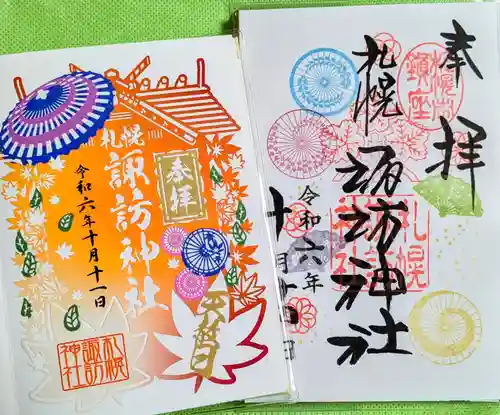 札幌
諏訪神社
奉拝
令和六年十月十一日
天赦日
札幌
諏訪
神社
奉拝
札幌
諏訪神社
令和六年
十月十一日
鎮座
札幌
諏訪
神社